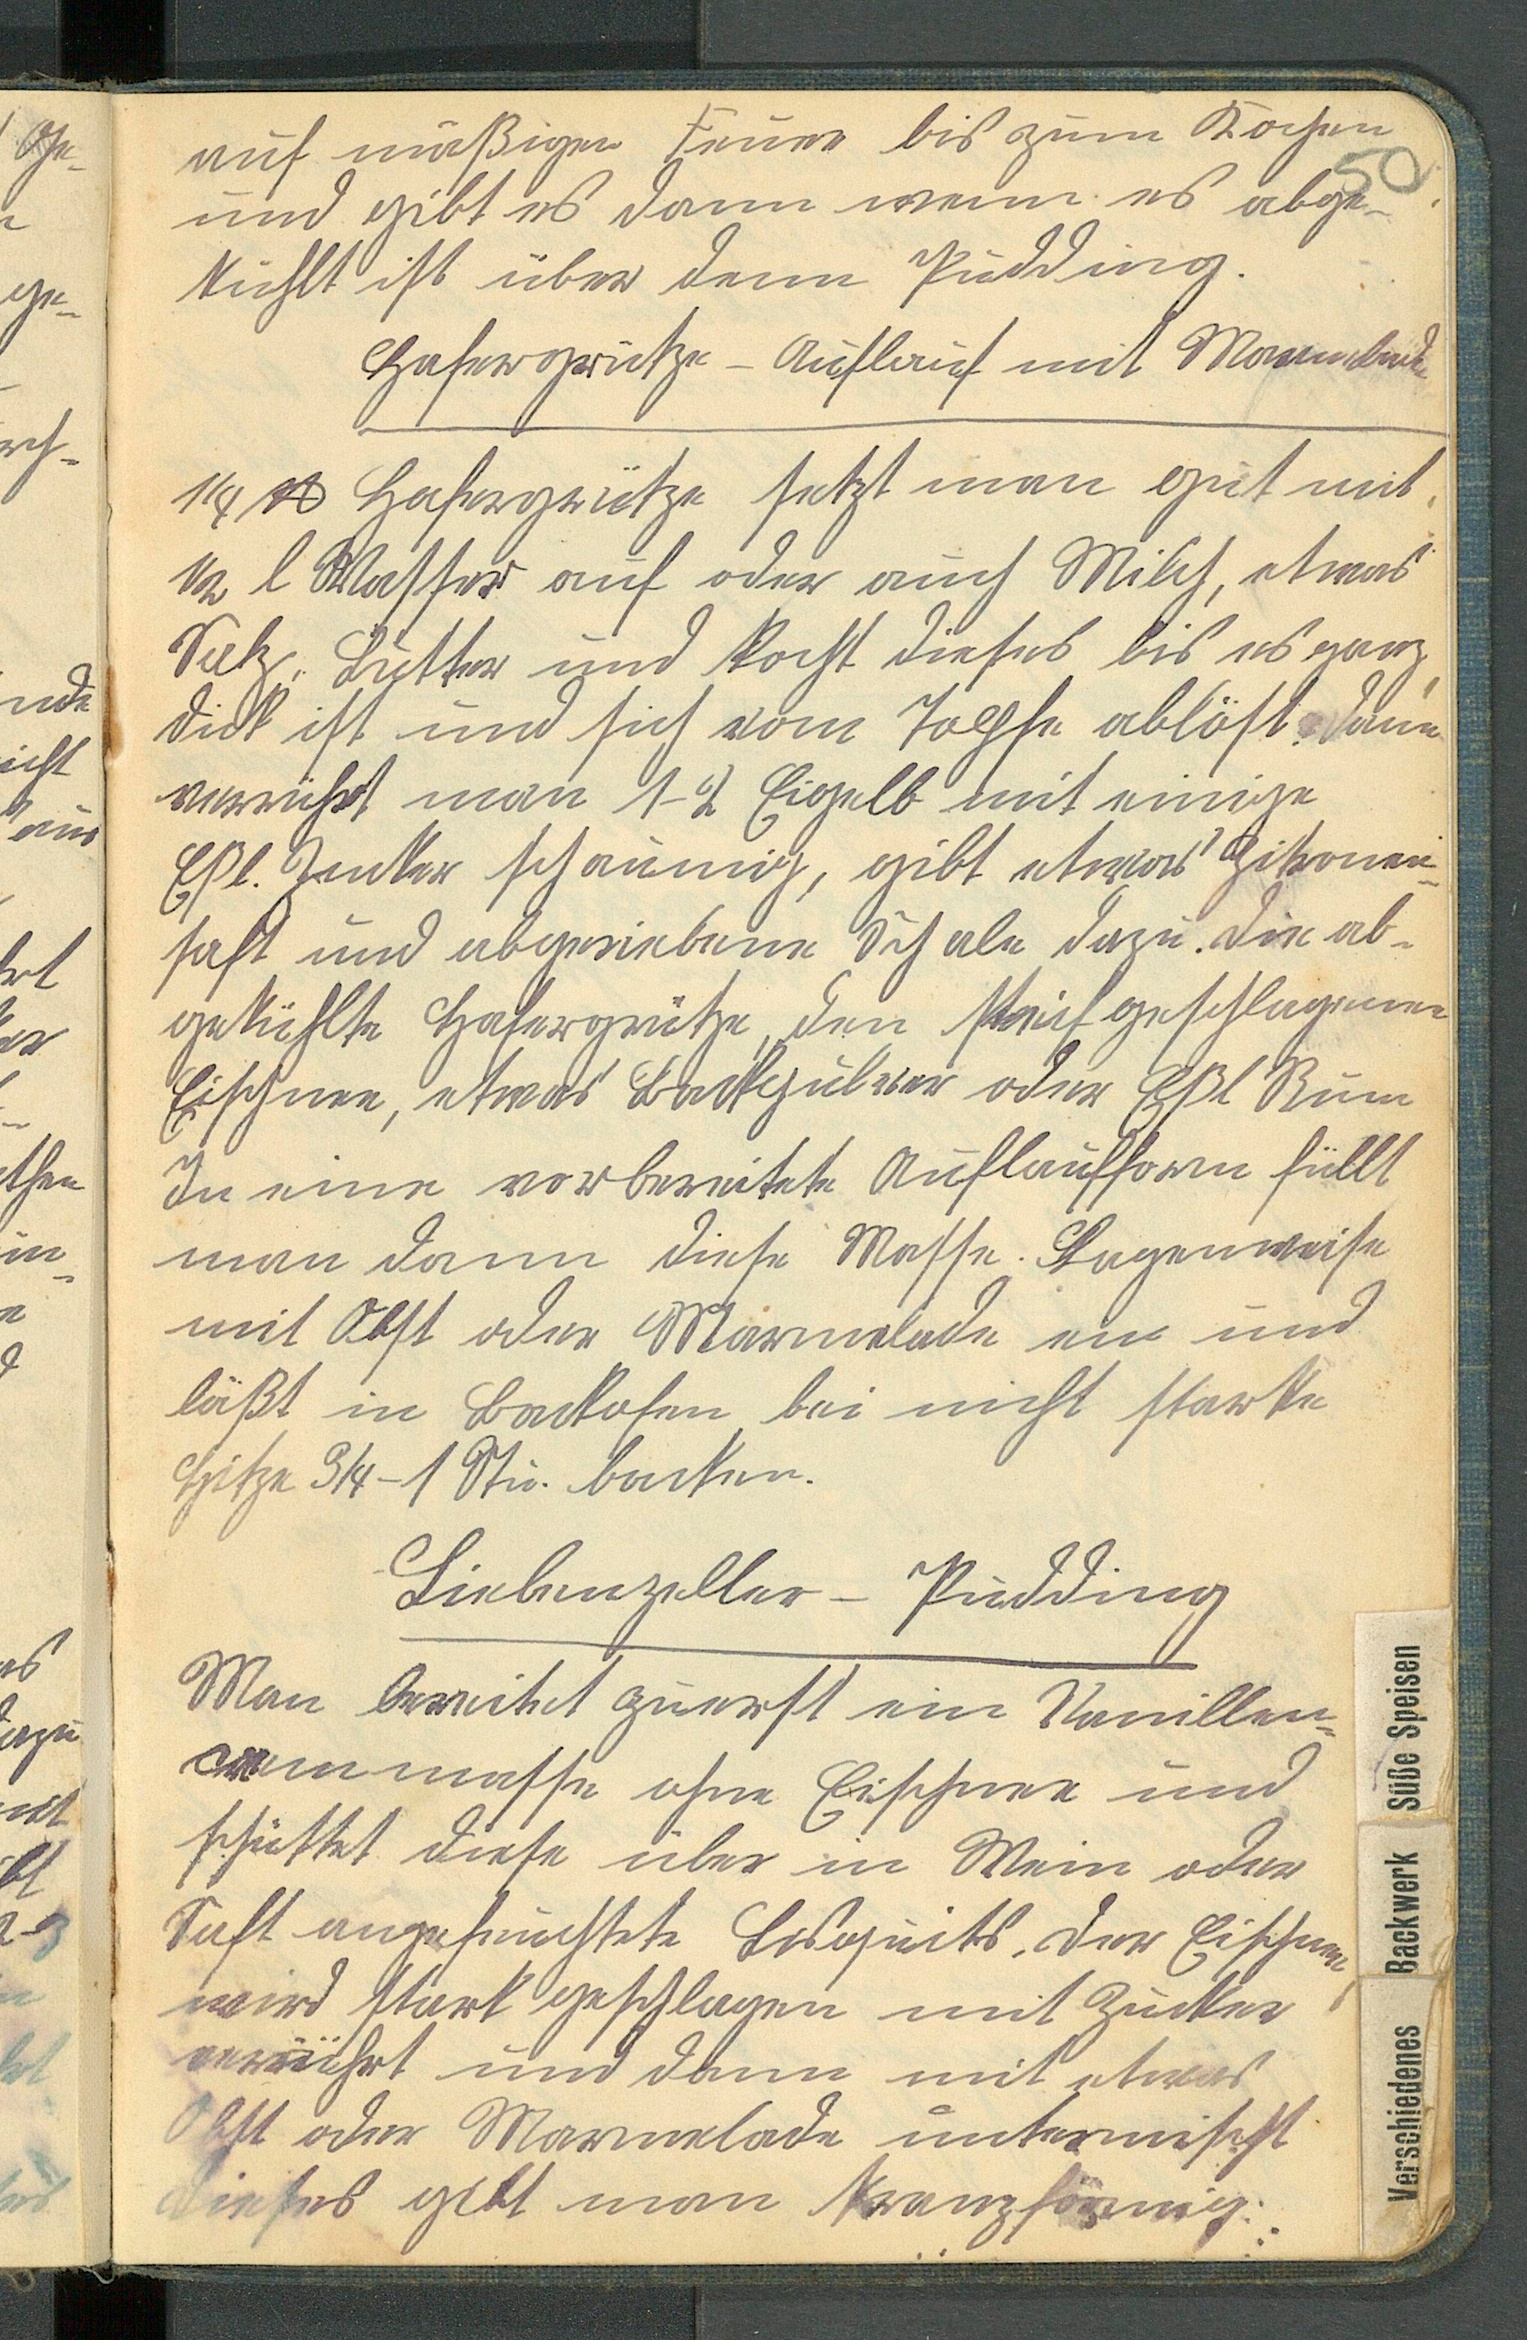 50
auf mäßigen Feuer bis zum Kochen
und gibt es dann wenn es abge-
kühlt ist über denn Pudding.
Hafergrütze - Auflauf mit Marmelade
1/4 ℔ Hafergrütze setzt man gut mit
1/2 l Wasser auf oder auch Milch, etwas
Salz, Butter und kocht dieses bis es ganz
dick ist und sich vom Topfe ablöst. Dann
verrührt man 1-2 Eigelb mit einige
Eßl. Zucker schaumig, gibt etwas Zitronen-
saft und abgeriebene Schale dazu. Die ab-
gekühlte Hafergrütze, den steif geschlagenen
Eischnee, etwas Backpulver oder Eßl Rum
In eine vorbereitete Auflaufform füllt
man dann diese Masse. Lagenweise
mit Obst oder Marmelade ein und
läßt in Backofen bei nicht starke
Hitze 3/4-1 Stu. backen.
Liebenzeller - Pudding
Man bereitet zuerst ein Vanillen-
crem masse ohne Eischnee und
schüttet diese über in Wein oder
Saft angefeuchtete Bisquits. Der Eischnee
wird stark geschlagen mit Zucker
verrührt und dann mit etwas
Obst oder Marmelade untermischt
dieses gibt man kranzförmig
Süße Speisen
Backwerk
Verschiedenes